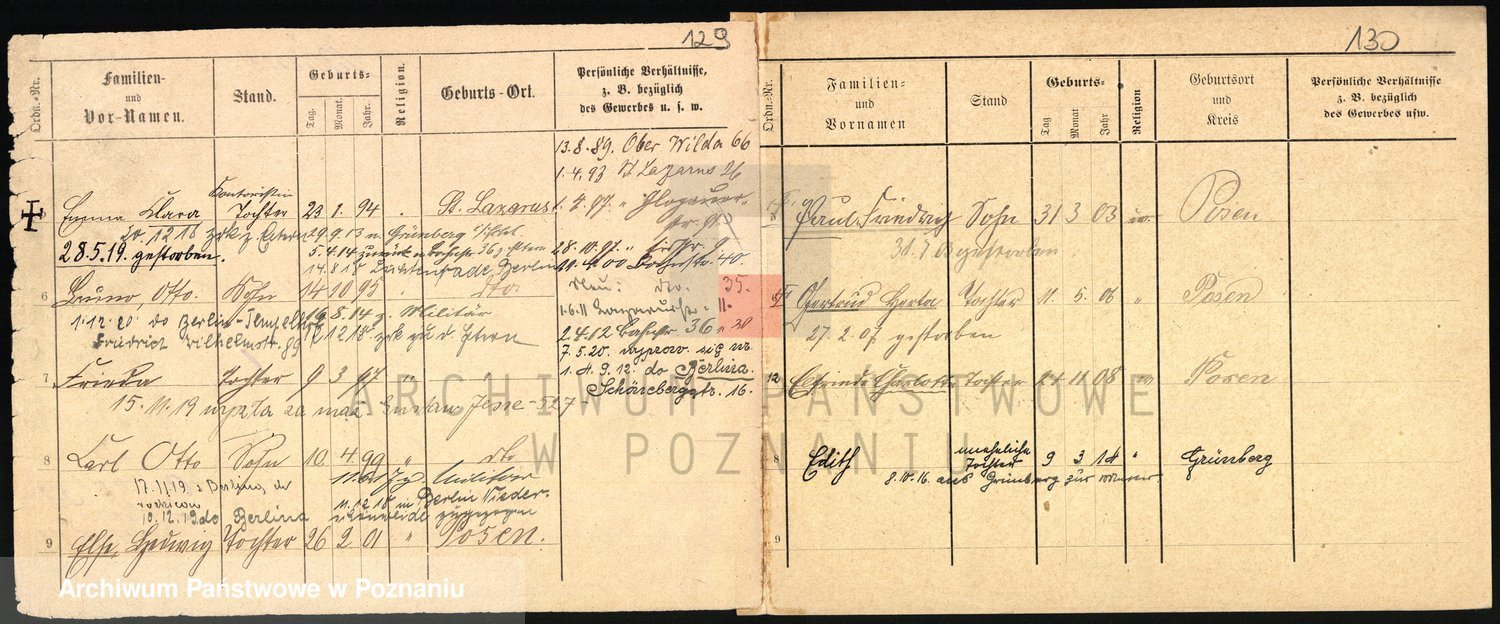 129
Ordn.-Nr.
Familien-
und
Vor-Namen.
Stand.
Geburts-
Tag.
Monat.
Jahr.
Religion.
Geburts-Ort.
Persönliche Verhältnisse,
z. B. bezüglich
des Gewerbes u. s. w.
13.8.89. Ober Wilda 66
1.4.93 St Lazarus 26
Kontoristin
Emma Klara Tochter 23 1. 94 " St. Lazarus
1. 4. 97. " Glogauer-
str. 91.
20.12.18 zrk z. Eltern 29.9.13 n. Grünberg
28.5.19. gestorben.
5.4.14 zurück n. Bahnstr. 36 z. Eltern
14.8.18 Lichtenrade Berlin
28.10.97. "
1.4.00 Bahnstr. 40
6 Bruno, Otto. Sohn 14 10 95 " dto
Neu: dto. 35.
1.12.20 do Berlin-Tempelhof
Friedrich Wilhelmstr. 89
16 8.14 z. Militär
12 18 zrk zu d. Eltern
1.6.11
2.4.12 Bahnstr. 36
7.5.20.
1.4.9.12. do Berlina.
Schönebergstr. 16.
7 Frieda Tochter 9 3 97 "
15.11.19 wyszła za mąż Gustav Jesse - 527 -
8 Karl Otto Sohn 10. 4 99 " dto
Militär
17.11.19 z Berlina
10.12.19 do Berlina
11.12.18 in Berlin Nieder-
zugezogen
9 Else, Hedwig Tochter 26 2 01 " Posen.
130
Ordn.-Nr.
Familien-
und
Vornamen
Stand
Geburts-
Tag
Monat
Jahr
Religion
Geburtsort
und
Kreis
Persönliche Verhältnisse
z. B. bezüglich
des Gewerbes usw.
Paul Friedrich Sohn 31 3 03 ev. Posen
gestorben
Gertrud Herta Tochter 11. 5. 06 " Posen
27. 2. 07 gestorben
12 Elfriede Charlotte Tochter 24 11 08 ev Posen
8 Edith uneheliche
Tochter 9 3 14 " Grünberg
8.10.16. aus Grünberg
9
ARCHIWUM PAŃSTWOWE
W POZNANIU
Archiwum Państwowe w Poznaniu